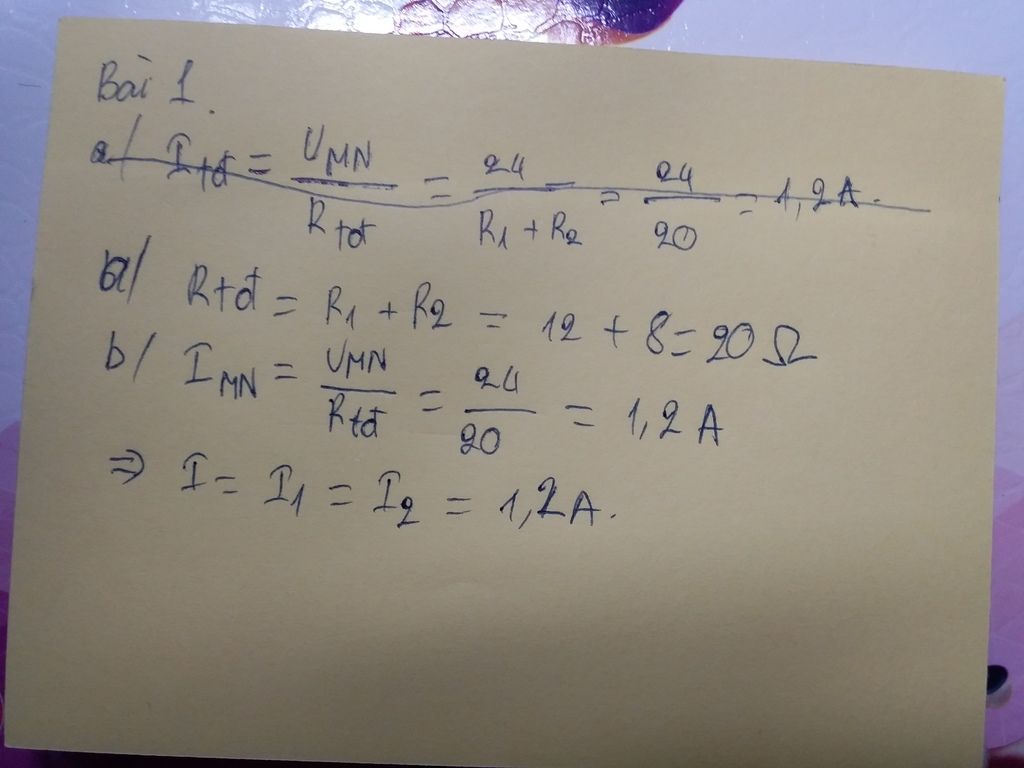 Bài 1.
a/ Itđ = UMN / Rtđ = 24 / R1 + R2 = 24 / 20 = 1,2A.
a/ Rtđ = R1 + R2 = 12 + 8 = 20 Ω
b/ IMN = UMN / Rtđ = 24 / 20 = 1,2 A
⇒ I = I1 = I2 = 1,2A.